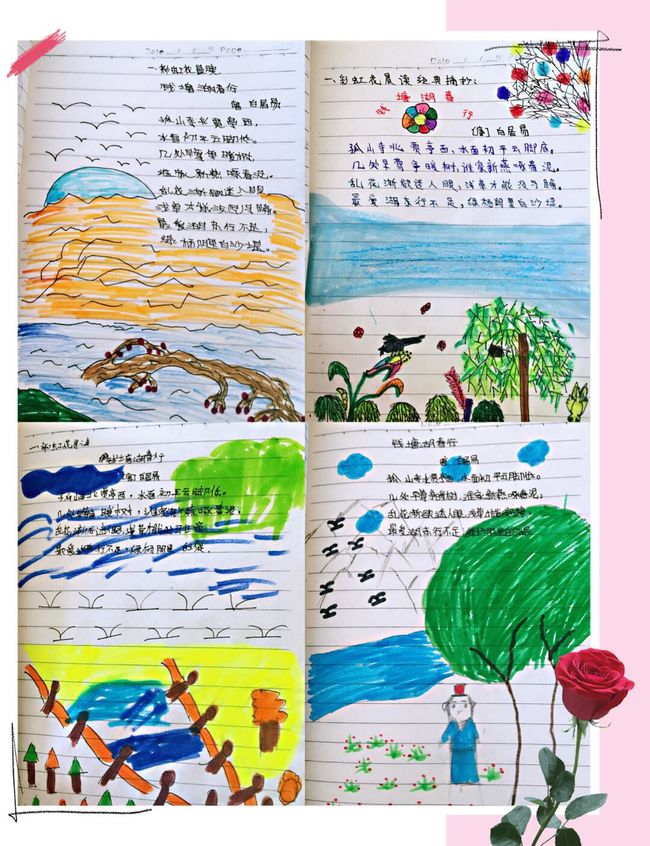 Date Page
一、彩虹花晨读
钱塘湖春行
唐 白居易
孤山寺北贾亭西,
水面初平云脚低。
几处早莺争暖树,
谁家新燕啄春泥。
乱花渐欲迷人眼,
浅草才能没马蹄。
最爱湖东行不足,
绿杨阴里白沙堤。
Date
一、彩虹花晨读经典摘抄:
钱塘湖春行
【唐】白居易
孤山寺北贾亭西,水面初平云脚底。
几处早莺争暖树,谁家新燕啄春泥。
乱花渐欲迷人眼,浅草才能没马蹄。
最爱湖东行不足,绿杨阴里白沙堤。
一、彩虹花晨读
钱塘湖春行
白居易
贾亭西,水面初平云脚低。
谁家新燕啄春泥。
最爱湖东行不足,绿杨阴里白沙堤。
钱塘湖春行
唐 白居易
孤山寺北贾亭西,水面初平云脚低。
几处早莺争暖树,谁家新燕啄春泥。
乱花渐欲迷人眼,浅草才能没马蹄。
最爱湖东行不足,绿杨阴里白沙堤。